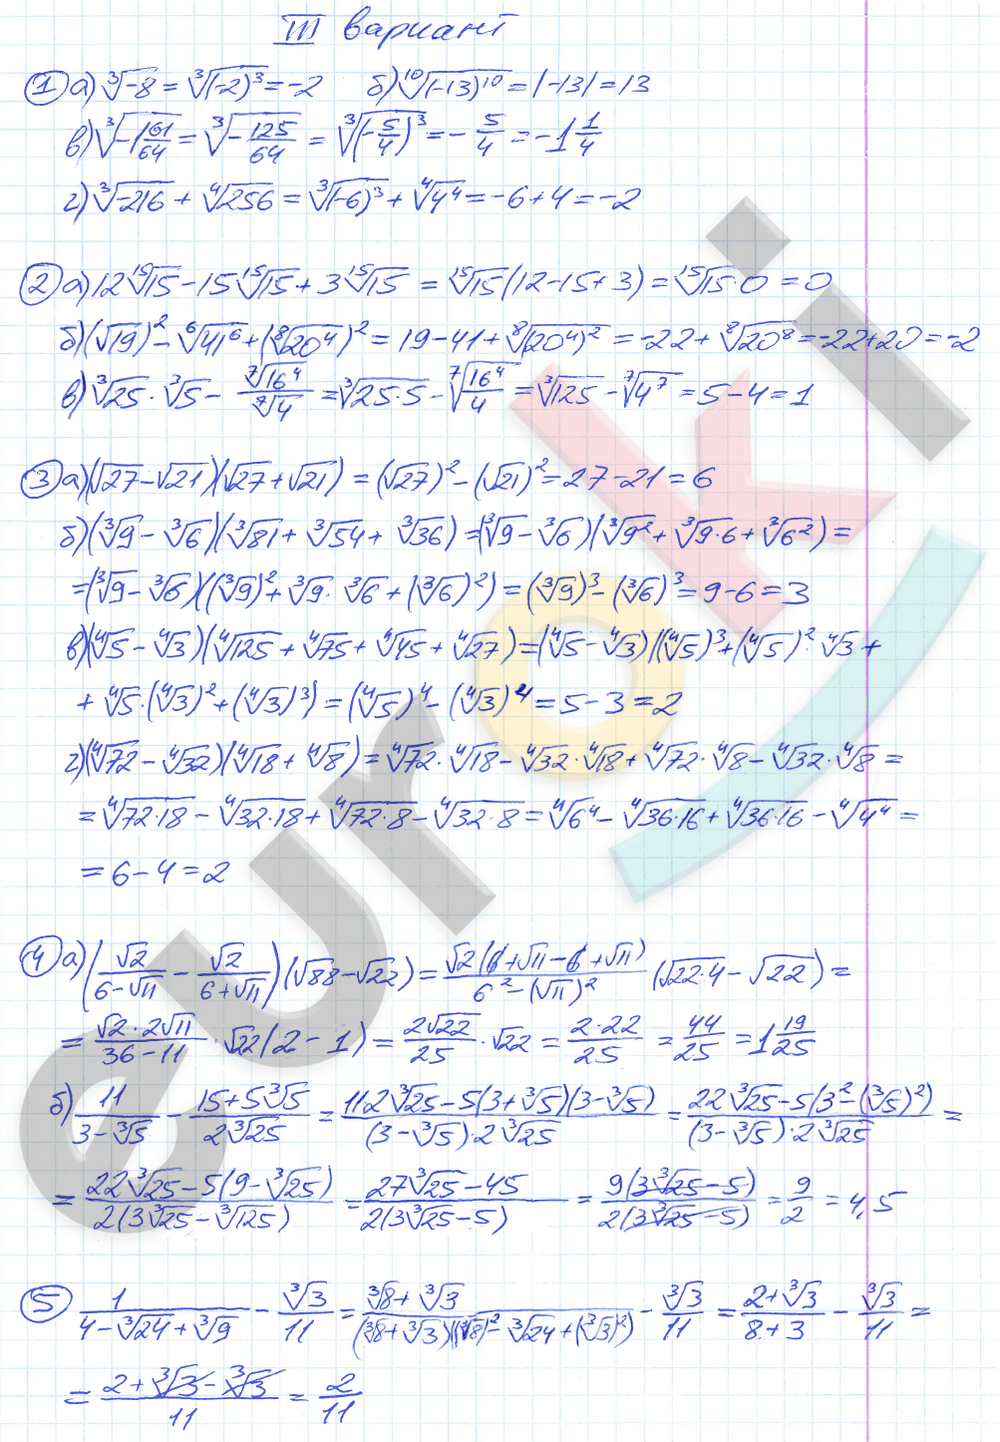 III вариант
① а) ∛-8 = ∛(-2)³ = -2 б) ¹⁰√(-13)¹⁰ = |-13| = 13
в) ∛-1 61/64 = ∛-125/64 = ∛(-5/4)³ = -5/4 = -1 1/4
г) ∛-216 + ⁴√256 = ∛(-6)³ + ⁴√4⁴ = -6+4 = -2
② а) 12 ¹⁵√15 - 15 ¹⁵√15 + 3 ¹⁵√15 = ¹⁵√15 (12-15+3) = ¹⁵√15·0 = 0
б) (√19)² - ⁶√41⁶ + (⁸√20⁴)² = 19-41+ ⁸√(20⁴)² = -22+ ⁸√20⁸ = -22+20 = -2
в) ∛25 · ∛5 - ⁷√16⁴/⁷√4 = ∛25·5 - ⁷√16⁴/4 = ∛125 - ⁷√4⁷ = 5-4 = 1
③ а) (√27-√21)(√27+√21) = (√27)² - (√21)² = 27-21 = 6
б) (∛9 - ∛6)(∛81 + ∛54 + ∛36) = (∛9 - ∛6)(∛9² + ∛9·6 + ∛6²) =
= (∛9 - ∛6)((∛9)² + ∛9 · ∛6 + (∛6)²) = (∛9)³ - (∛6)³ = 9-6 = 3
в) (⁴√5 - ⁴√3)(⁴√125 + ⁴√75 + ⁴√45 + ⁴√27) = (⁴√5 - ⁴√3)((⁴√5)³ + (⁴√5)² · ⁴√3 +
+ ⁴√5·(⁴√3)² + (⁴√3)³) = (⁴√5)⁴ - (⁴√3)⁴ = 5-3 = 2
г) (⁴√72 - ⁴√32)(⁴√18 + ⁴√8) = ⁴√72 · ⁴√18 - ⁴√32 · ⁴√18 + ⁴√72 · ⁴√8 - ⁴√32 · ⁴√8 =
= ⁴√72·18 - ⁴√32·18 + ⁴√72·8 - ⁴√32·8 = ⁴√6⁴ - ⁴√36·16 + ⁴√36·16 - ⁴√4⁴ =
= 6-4 = 2
④ а) (√2/(6-√11) - √2/(6+√11)) (√88-√22) = √2(6+√11-6+√11)/(6²-(√11)²) (√22·4 - √22) =
= √2·2√11/(36-11) · √22(2-1) = 2√22/25 · √22 = 2·22/25 = 44/25 = 1 19/25
б) 11/(3-∛5) - (15+5∛5)/(2∛25) = (11·2∛25-5(3+∛5)(3-∛5))/((3-∛5)·2∛25) = (22∛25-5(3²-(∛5)²))/((3-∛5)·2∛25) =
= (22∛25-5(9-∛25))/(2(3∛25-∛125)) = (27∛25-45)/(2(3∛25-5)) = 9(3∛25-5)/(2(3∛25-5)) = 9/2 = 4,5
⑤ 1/(4-∛24+∛9) - ∛3/11 = (∛8+∛3)/((∛8+∛3)((∛8)²-∛24+(∛3)²)) - ∛3/11 = (2+∛3)/(8+3) - ∛3/11 =
= (2+∛3-∛3)/11 = 2/11
euroki